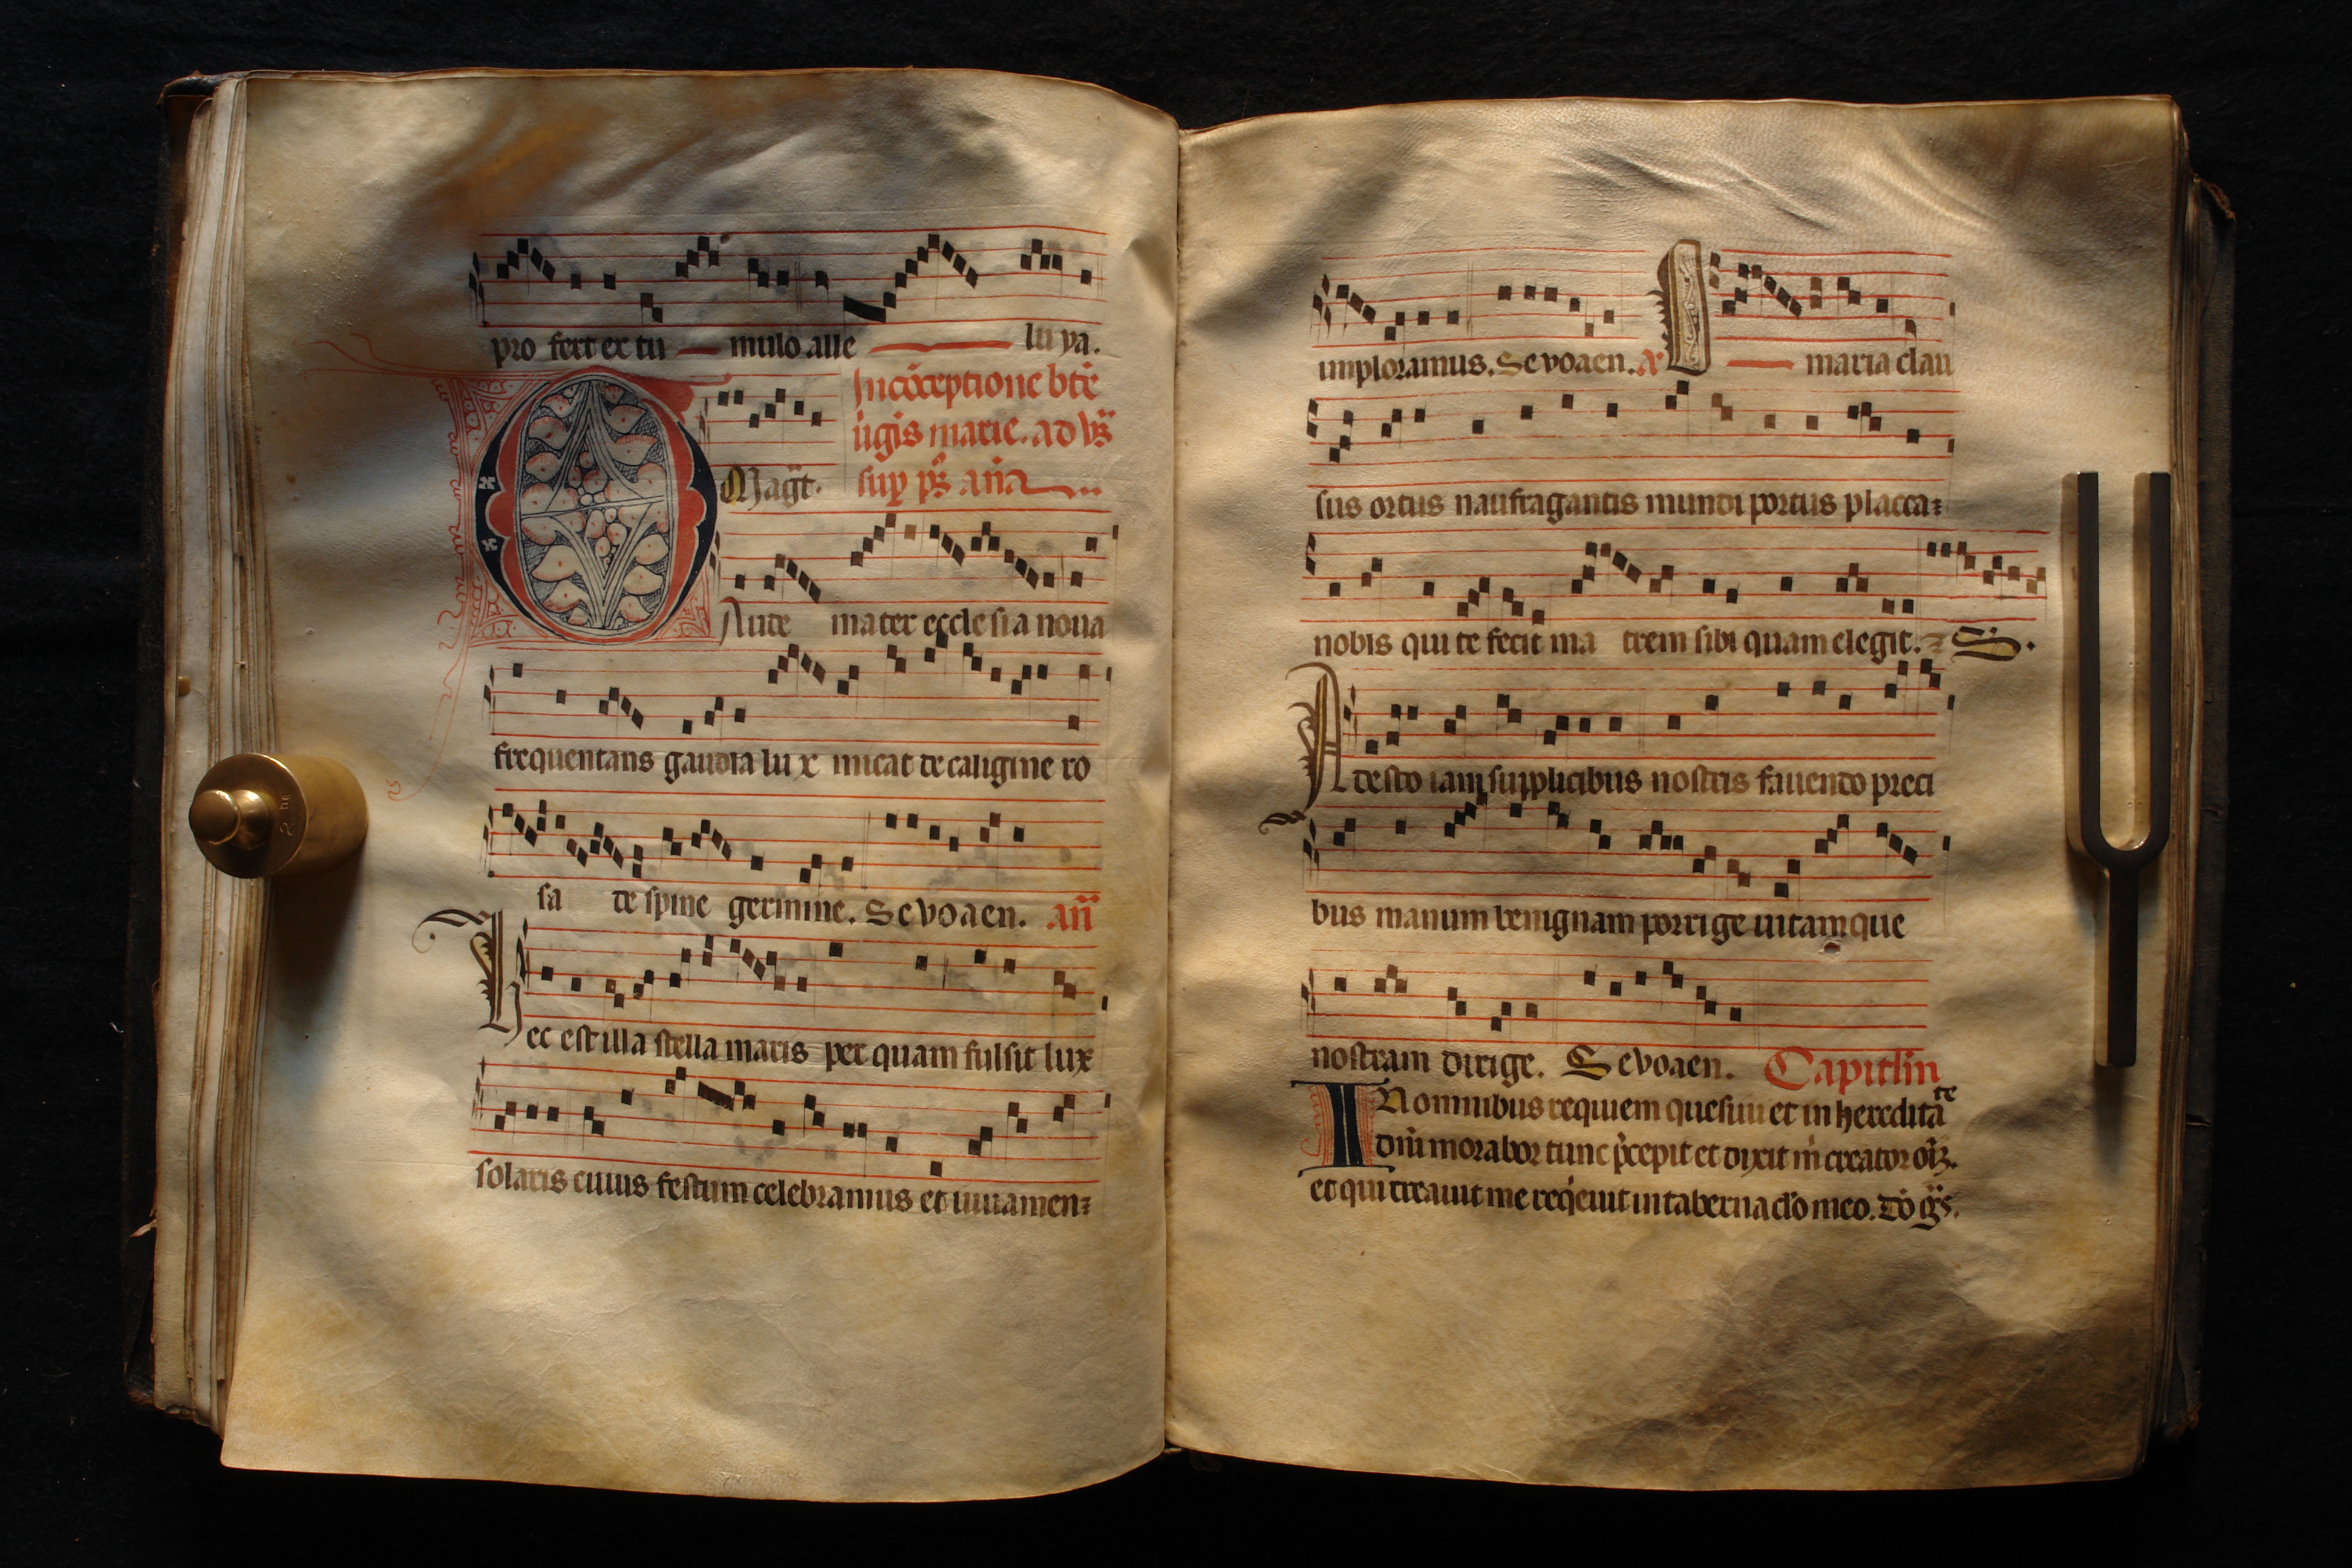 pro fert ex tu mulo alle lu ya.
In cōceptione btē
ūgis marie. ad vs̄
sup ps̄. añā
Mag̃t.
Aude mater ecclesia noua
frequentans gaudia lux micat de caligine ro
sa de spine germine. Sevoaen. an̄
Hec est illa stella maris per quam fulsit lux
solaris cuius festum celebramus et iuuamen
imploramus. Sevoaen. maria clau
sus ortus naufragantis mundi portus placa
nobis qui te fecit ma trem sibi quam elegit. S.
Adesto iam supplicibus nostris fauendo preci
bus manum benignam porrige uitamque
nostram dirige. Sevoaen. Capitlm
IN omnibus requiem quesiui et in heredita te
dn̄i morabor tunc p̄cepit et dixit m̄ creator oīz.
et qui creauit me req̄euit in tabernaclo meo. Dō ḡs.
2 hg